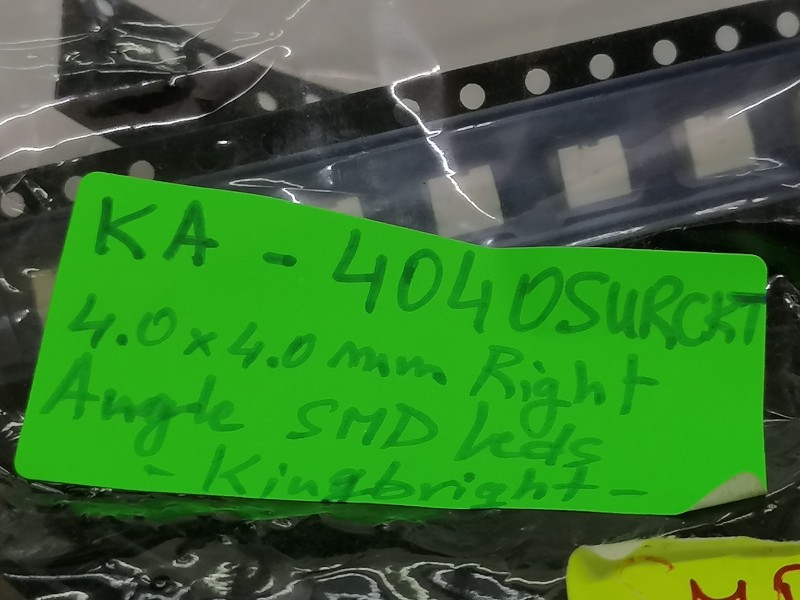 KA - 4040SURCKT
4.0 x 4.0 mm Right
Angle SMD leds
- Kingbright -